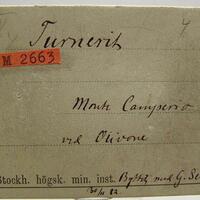 Turnerit 4
M 2663
Monte Camperio
vid Olivone
Stockh. högsk. min. inst. Bytt med G.